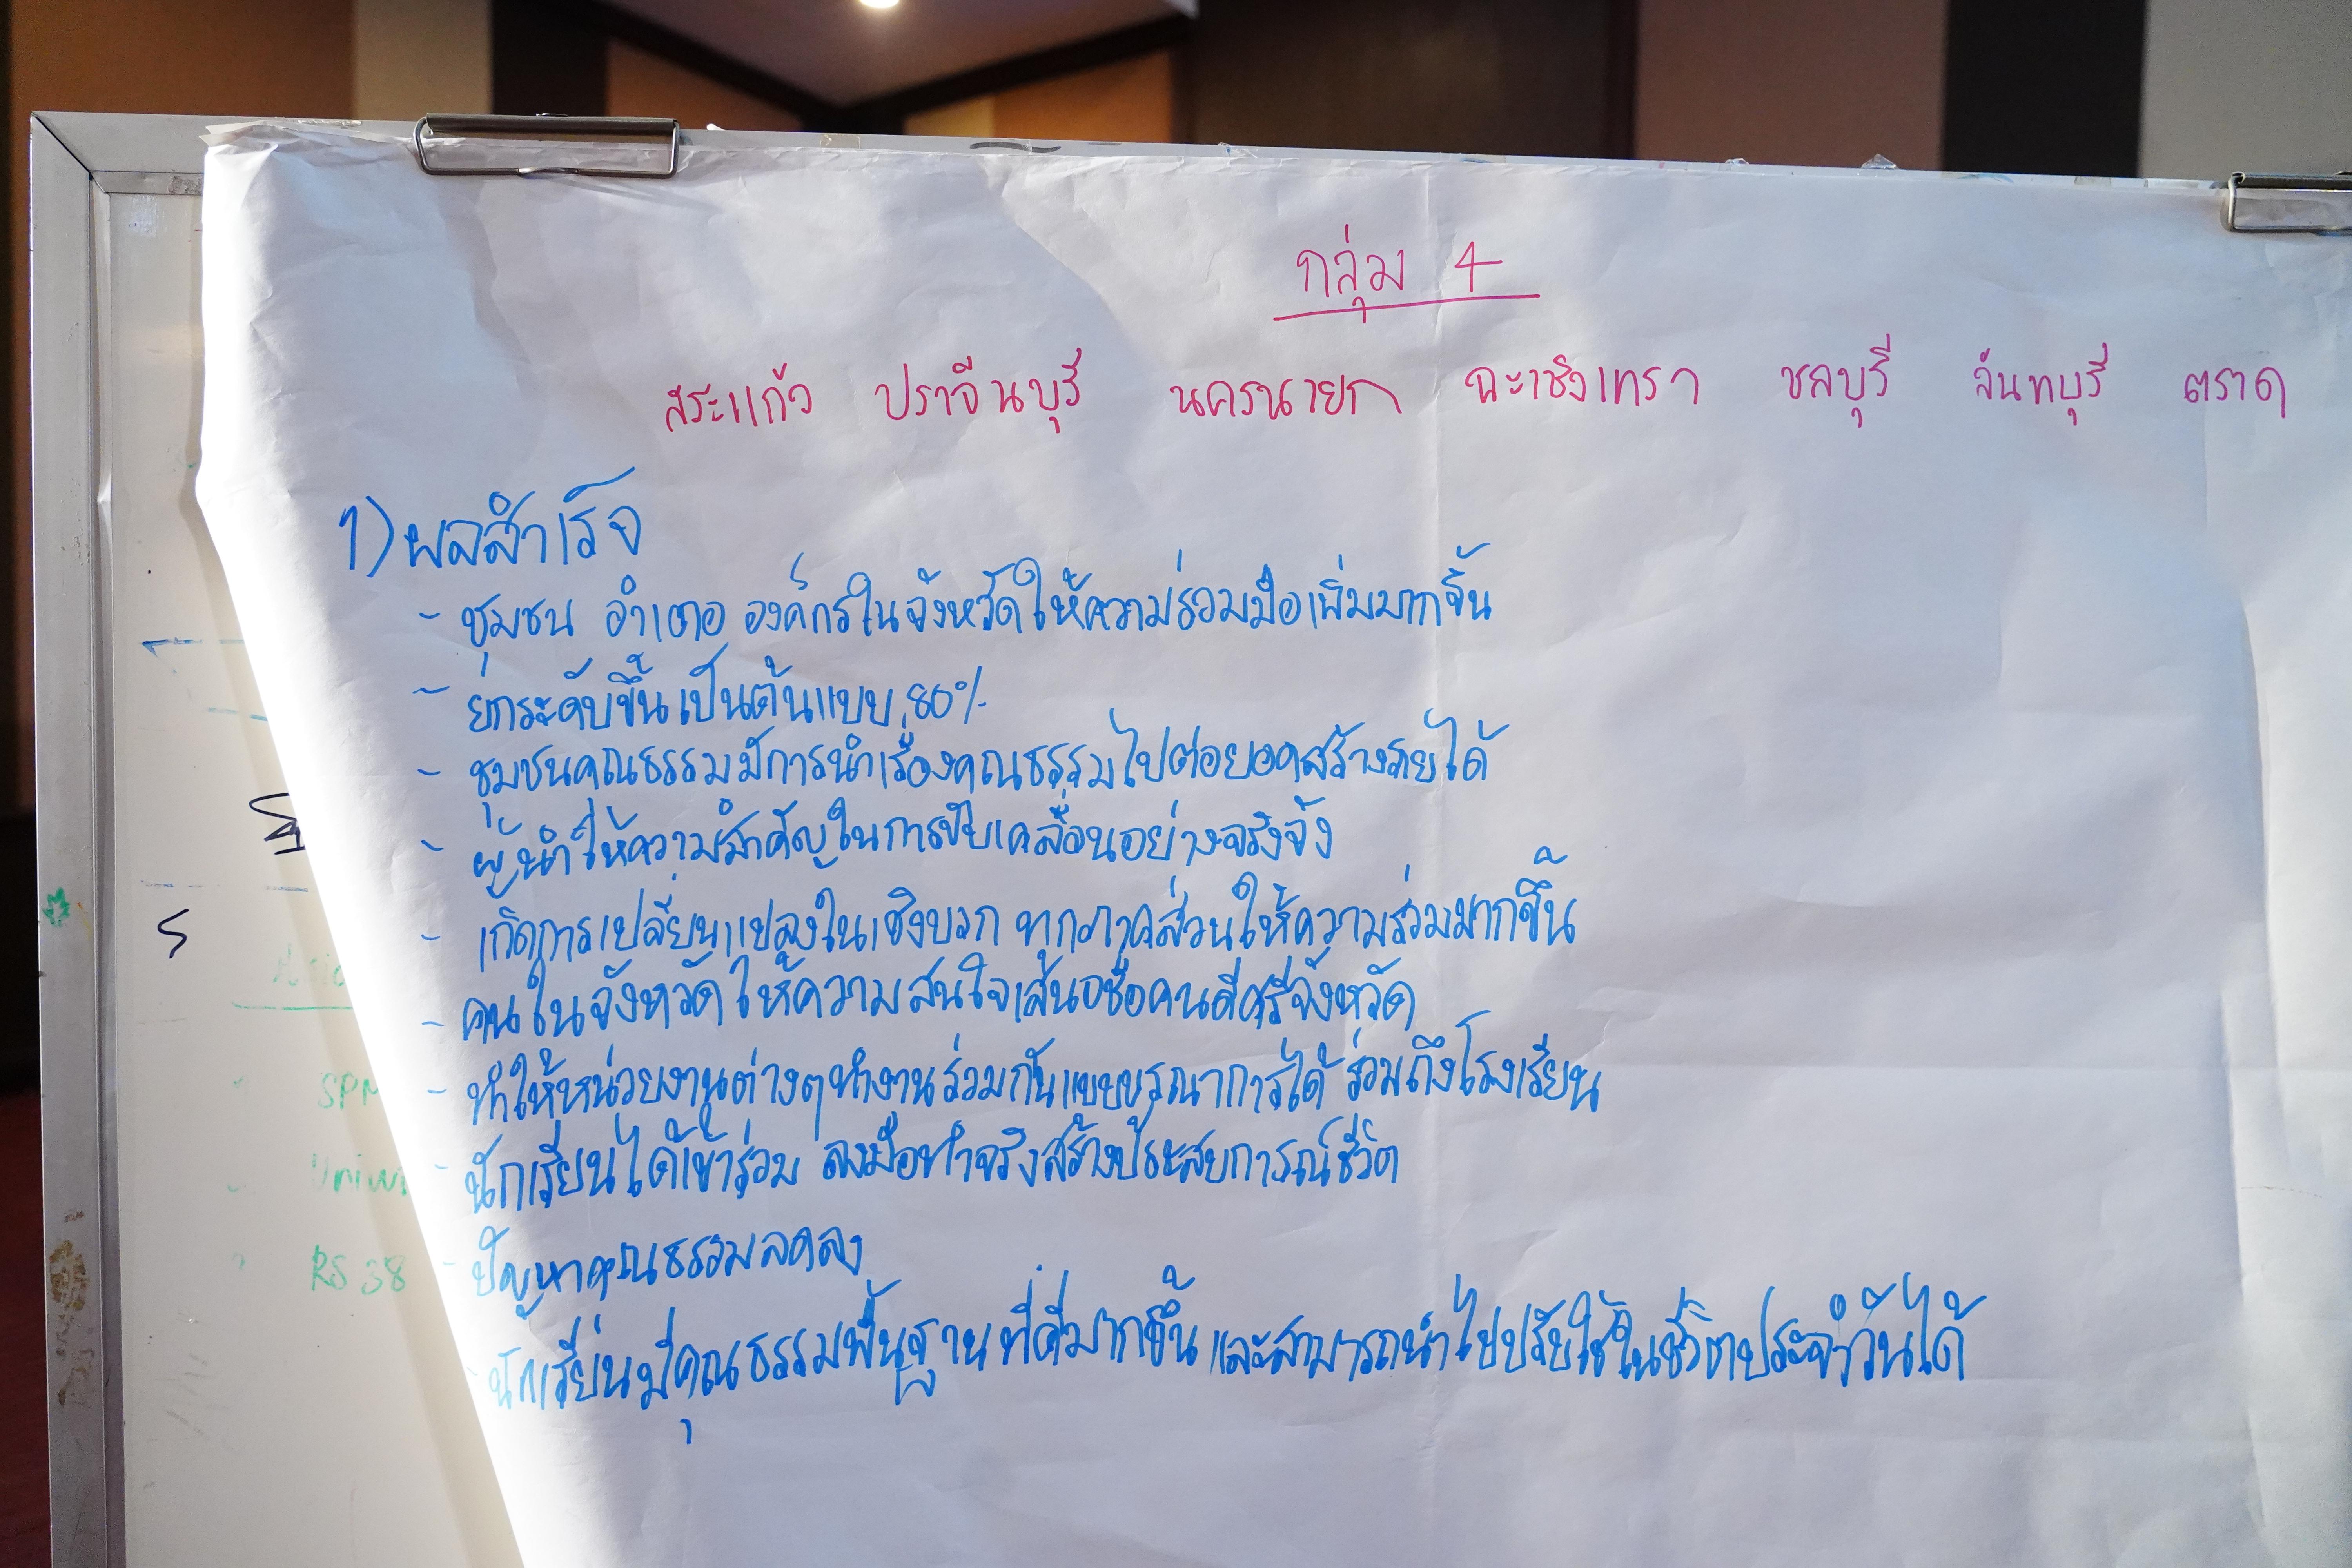 กลุ่ม 4
สระแก้ว ปราจีนบุรี นครนายก ฉะเชิงเทรา ชลบุรี จันทบุรี ตราด
1) ผลสำเร็จ
- ชุมชน อำเภอ องค์กรในจังหวัดให้ความร่วมมือเพิ่มมากขึ้น
- ยกระดับขึ้นเป็นต้นแบบ 80%
- ชุมชนคุณธรรมมีการนำเรื่องคุณธรรมไปต่อยอดสร้างรายได้
- ผู้นำให้ความสำคัญในการขับเคลื่อนอย่างจริงจัง
- เกิดการเปลี่ยนแปลงในเชิงบวก ทุกภาคส่วนให้ความร่วมมากขึ้น
- คนในจังหวัดให้ความสนใจเสนอชื่อคนดีศรีจังหวัด
- ทำให้หน่วยงานต่างๆทำงานร่วมกันแบบบูรณาการได้ ร่วมถึงโรงเรียน
- นักเรียนได้เข้าร่วม ลงมือทำจริงสร้างประสบการณ์ชีวิต
- ปัญหาคุณธรรมลดลง
- นักเรียนมีคุณธรรมพื้นฐานที่ดีมากขึ้น และสามารถนำไปปรับใช้ในชีวิตประจำวันได้
S
SPM
RS 38